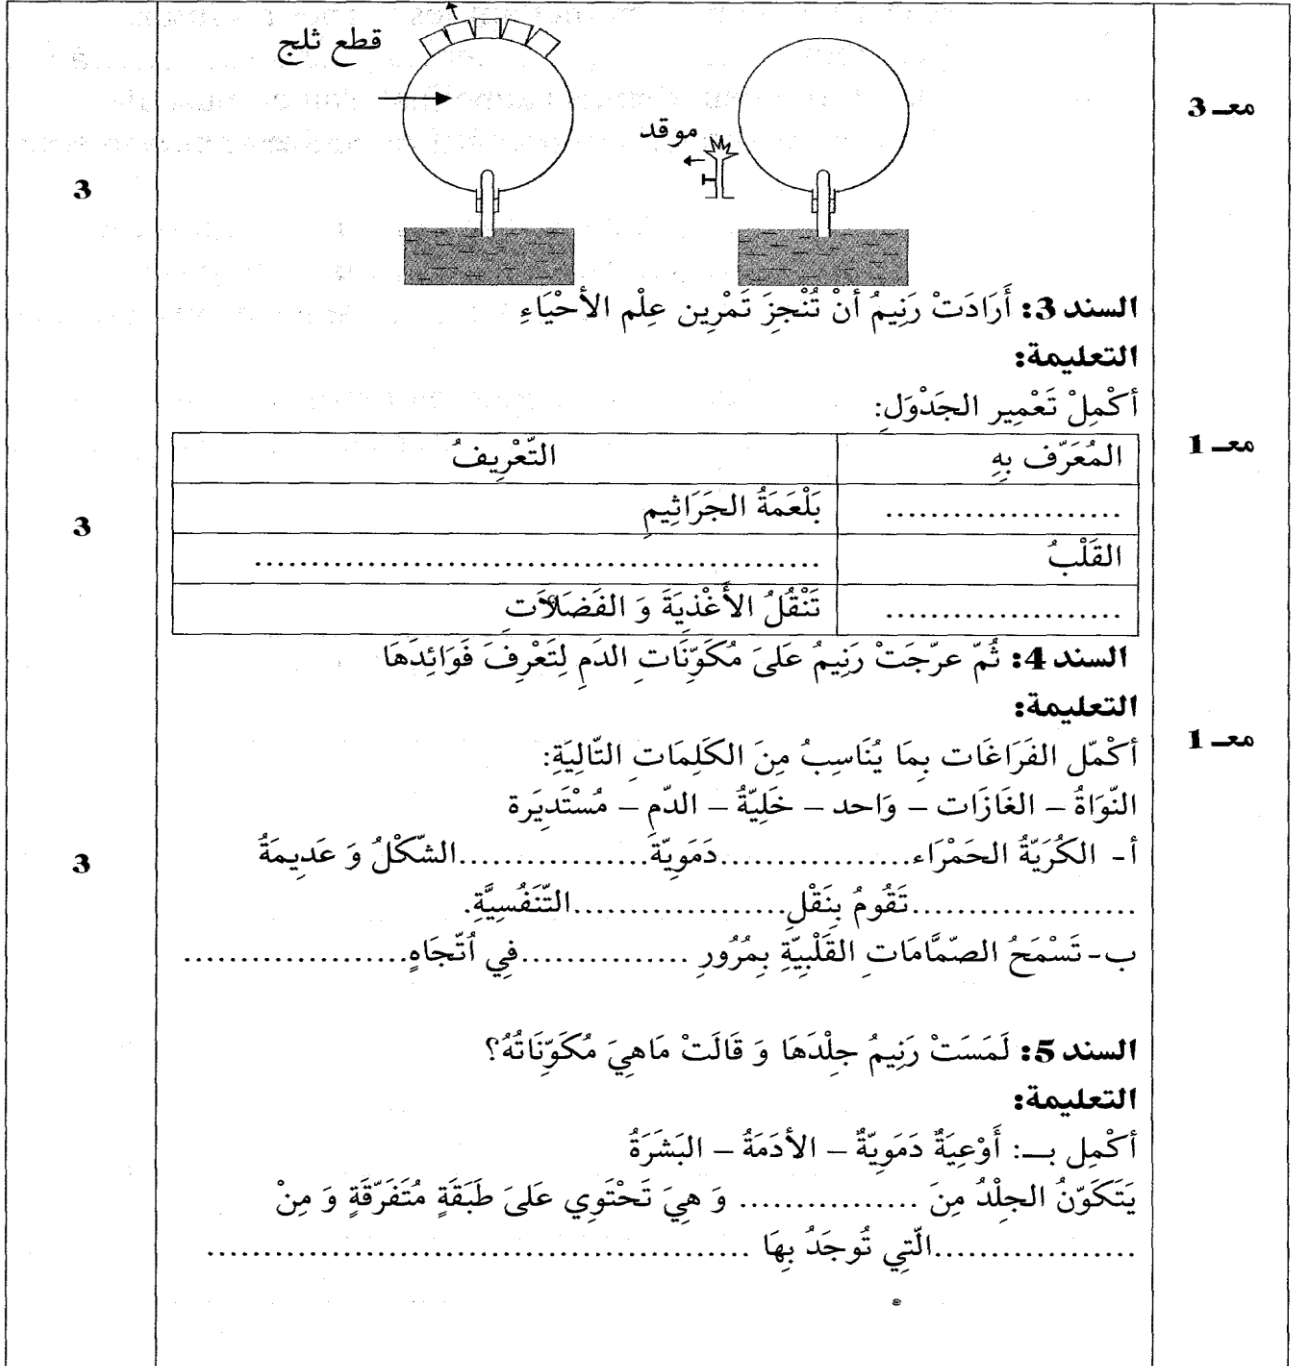 قطع ثلج
موقد
معـ 3
3
السند 3: أَرَادَتْ رَنِيمُ أنْ تُنْجِزَ تَمْرِين عِلْم الأحْيَاءِ
التعليمة:
أكْمِلْ تَعْمِير الجَدْوَلِ:
معـ 1
3
المُعَرّف بِهِ التَّعْرِيفُ
..................... بَلْعَمَةُ الجَرَاثِيمِ
القَلْبُ ..................................................
..................... تَنْقُلُ الأَغْذِيَةَ وَ الفَضَلاَتِ
السند 4: ثُمّ عرّجَتْ رَنِيمُ عَلىَ مُكَوّنَاتِ الدَمِ لِتَعْرِفَ فَوَائِدَهَا
التعليمة:
معـ 1
أكْمّل الفَرَاغَات بِمَا يُنَاسِبُ مِنَ الكَلِمَاتِ التّالِيَةِ:
النّوَاةُ – الغَازَات – وَاحد – خَلِيّةُ – الدّمِ – مُسْتَدِيَرة
3
أ- الكُرَيّةُ الحَمْرَاء.................دَمَوِيّةَ.................الشّكْلُ وَ عَدِيمَةُ
....................تَقُومُ بِنَقْلِ...................التّنَفُسِيَّةِ.
ب- تَسْمَحُ الصّمَّامَاتِ القَلْبِيّةِ بِمُرُورِ ...............فِي اُتّجَاهٍ....................
السند 5: لَمَسَتْ رَنِيمُ جِلْدَهَا وَ قَالَتْ مَاهِيَ مُكَوّنَاتُهُ؟
التعليمة:
أكْمِل بـــ: أَوْعِيَةٌ دَمَوِيّةٌ – الأدَمَةُ – البَشَرَةُ
يَتَكَوّنُ الجِلْدُ مِنَ ................ وَ هِيَ تَحْتَوِي عَلىَ طَبَقَةٍ مُتَفَرّقَةٍ وَ مِنْ
..................الّتِي تُوجَدُ بِهَا .................................................